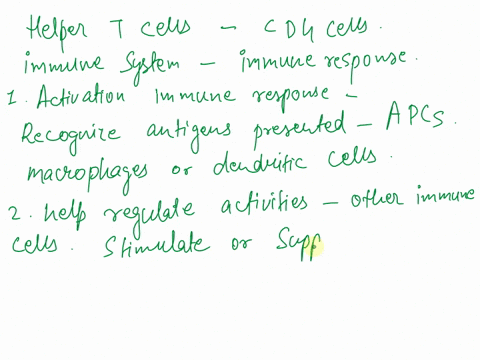 Helper T cells - CD4 cells.
immune system - immune response.
1. Activation immune response -
Recognize antigens presented - APCs.
macrophages or dendritic cells.
2. help regulate activities - other immune
cells. Stimulate or Supp